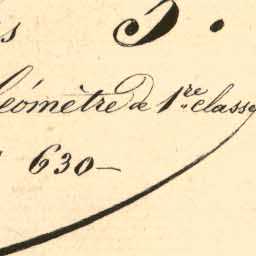 s S.
Géomètre de 1.re classe
630—